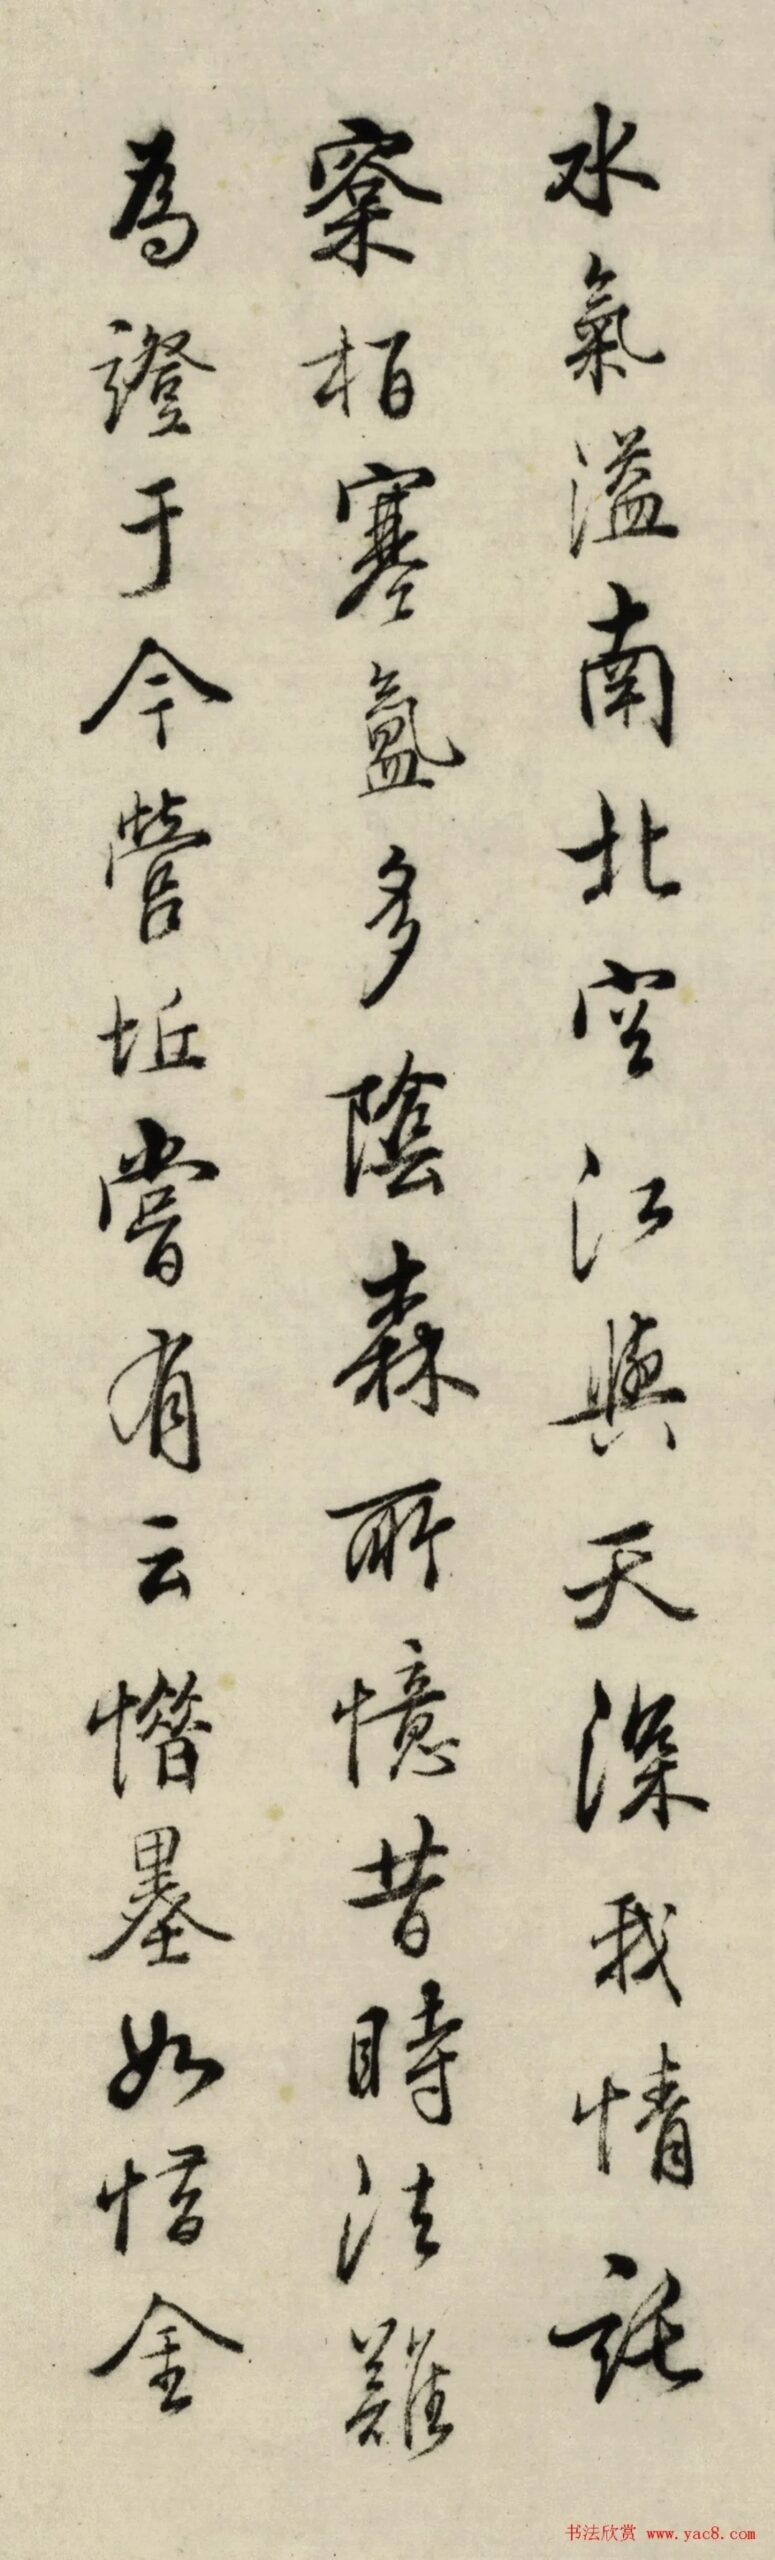 水氣溢南北空江與天深我情託
窠栢寒氳多陰森所憶昔時法難
為證于今營坵嘗有云惜墨如惜金
书法欣赏 www.yac8.com